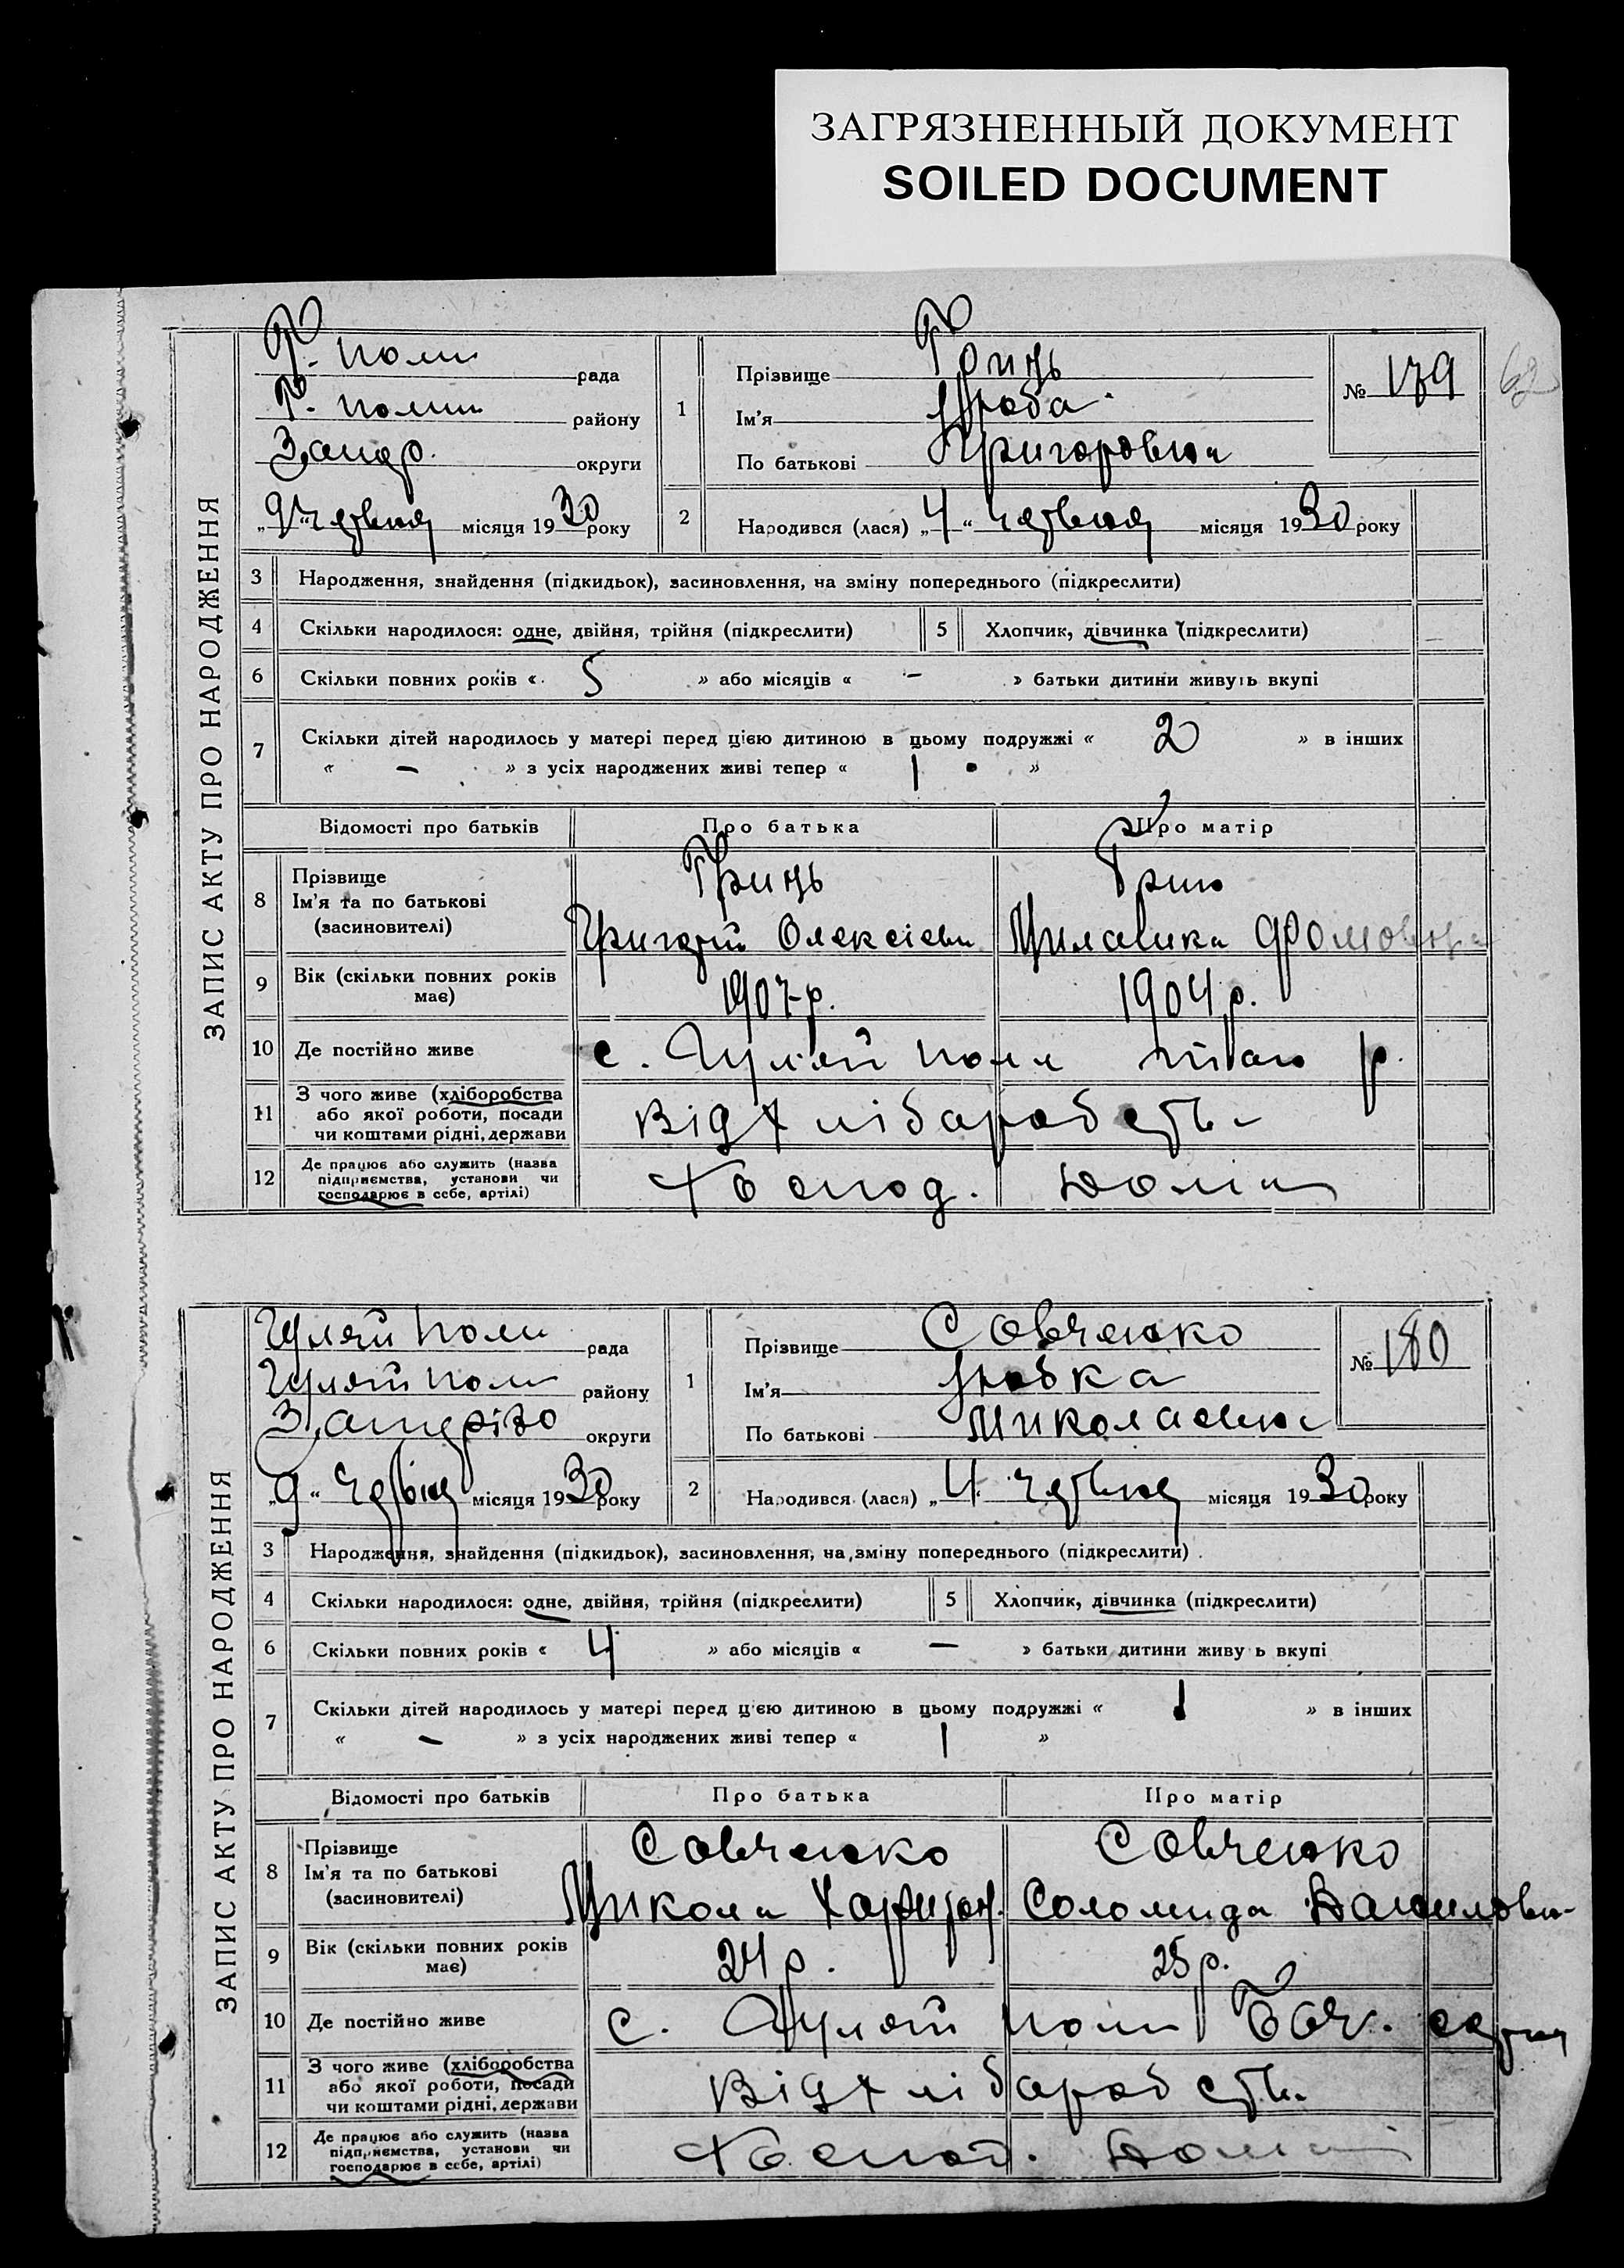 ЗАГРЯЗНЕННЫЙ ДОКУМЕНТ
SOILED DOCUMENT
62
ЗАПИС АКТУ ПРО НАРОДЖЕННЯ
Г. поли рада
Г. поли району
Запор. округи
„9“ червня місяця 1930 року
1 Прізвище Гринь
Ім'я Люба
По батькові Григоровна
№ 179
2 Народився (лася) „4“ червня місяця 1930 року
3 Народження, знайдення (підкидьок), засиновлення, на зміну попереднього (підкреслити)
4 Скільки народилося: одне, двійня, трійня (підкреслити) 5 Хлопчик, дівчинка (підкреслити)
6 Скільки повних років « 5 » або місяців « - » батьки дитини живуть вкупі
7 Скільки дітей народилось у матері перед цією дитиною в цьому подружжі « 2 » в інших
« - » з усіх народжених живі тепер « 1 »
Відомості про батьків Про батька Про матір
8 Прізвище
Ім'я та по батькові
(засиновителі)
Гринь
Григорій Олексієви
Гринь
9 Вік (скільки повних років
має)
1907 р. 1904 р.
10 Де постійно живе с. Гуляй поле р.
11 З чого живе (хліборобства
або якої роботи, посади
чи коштами рідні, держави
Від хліборобств
12 Де працює або служить (назва
підприємства, установи чи
господарює в себе, артілі)
Господ.
ЗАПИС АКТУ ПРО НАРОДЖЕННЯ
Гуляй поли рада
Гуляй поли району
округи
„9“ червня місяця 1930 року
1 Прізвище Савченко
Ім'я Любка
По батькові Миколаевна
№ 180
2 Народився (лася) „4 червня місяця 1930 року
3 Народження, знайдення (підкидьок), засиновлення, на зміну попереднього (підкреслити)
4 Скільки народилося: одне, двійня, трійня (підкреслити) 5 Хлопчик, дівчинка (підкреслити)
6 Скільки повних років « 4 » або місяців « — » батьки дитини живу ь вкупі
7 Скільки дітей народилось у матері перед цією дитиною в цьому подружжі « 1 » в інших
« - » з усіх народжених живі тепер « 1 »
Відомості про батьків Про батька Про матір
8 Прізвище
Ім'я та по батькові
(засиновителі)
Савченко
Микола Харитон.
Савченко
Соломида Даниловн
9 Вік (скільки повних років
має)
24 р. 25 р.
10 Де постійно живе с. Гуляй поли
11 З чого живе (хліборобства
або якої роботи, посади
чи коштами рідні, держави
Від хліборобств
12 Де працює або служить (назва
підприємства, установи чи
господарює в себе, артілі)
Господ.